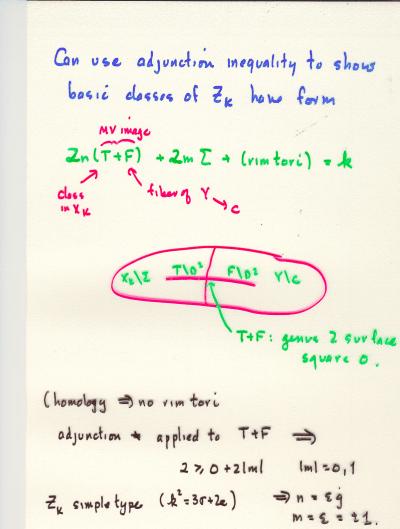 Can use adjunction inequality to show
basic classes of Z_K have form
MV image
2n(T+F) + 2m Σ + (rim tori) = k
class in X_K
fiber of Y → C
X_K\Σ T\D² F\D² Y\C
T+F: genus 2 surface
square 0.
(homology ⇒ no rim tori
adjunction * applied to T+F ⇒
2 ≥ 0 + 2|m| |m| = 0,1
Z_K simple type (k² = 3σ+2e) ⇒ n = εj
m = ε = ±1.